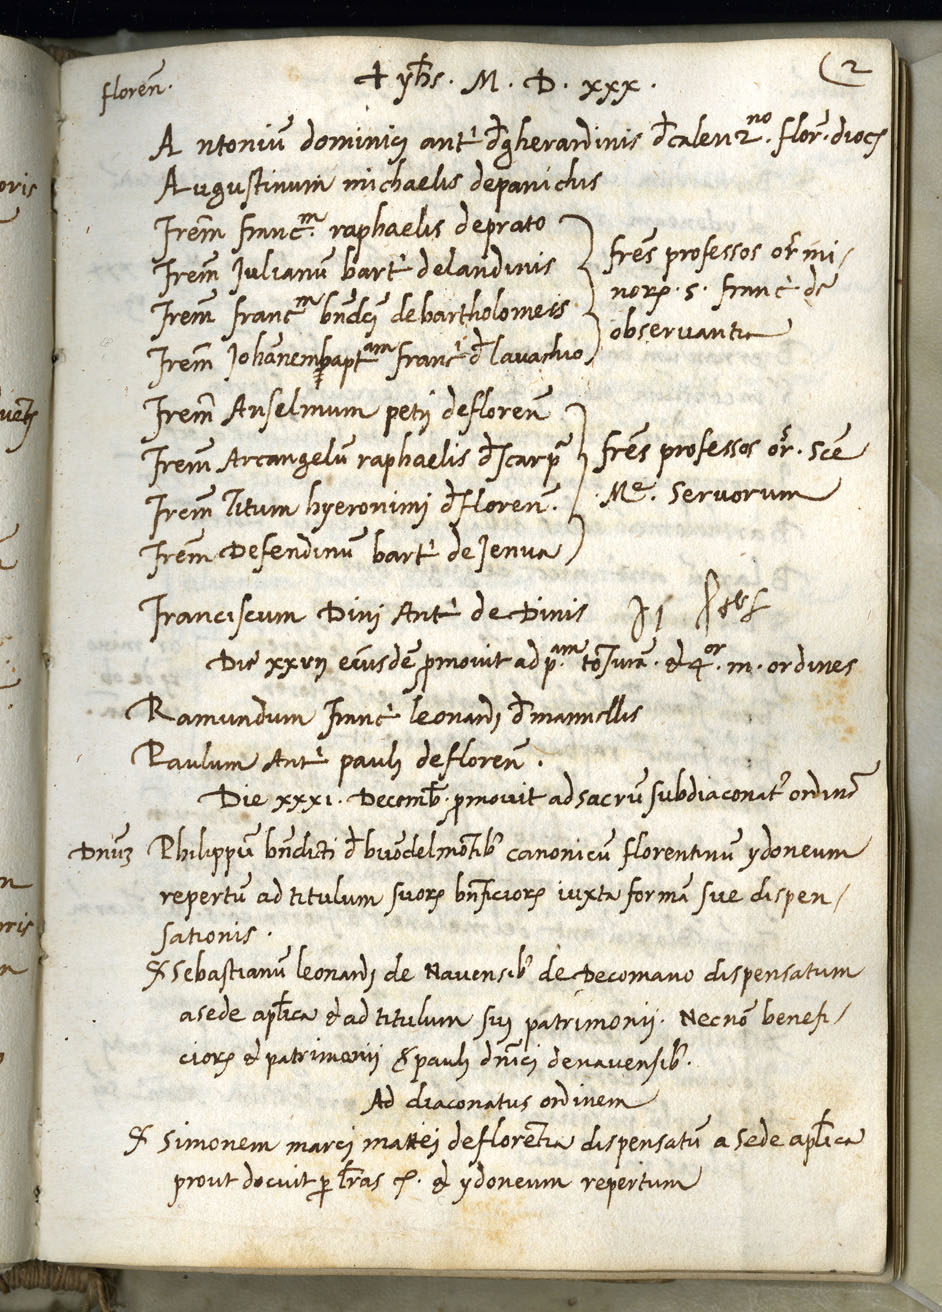 floreñ.
✝ yħs. M. D. xxx.
(2
Antoniũ dominici ant' đgherardinis đcalen2no. flor. diocs
Augustinum michaelis depanichis
frem̃ franc.m raphaelis deprato
frem̃ Julianũ bart' delandinis
frem̃ francm bñdci debartholomeis
frem̃ Johanembaptam franc' đlavachio
fres̃ professos or̃ mi/
norꝝ. s. franc' de
observantia
frem̃ Anselmum petrj defloreñ
frem̃ Arcangelũ raphaelis đscarp̃
frem̃ Titum hyeronimi đfloreñ.
frem̃ Defendinũ bart' de Jenua
fres̃ professos or̃. Scẽ
Me. Servorum
Franciscum Dini Ant' de Dinis
Die xxvij eiusdẽ ꝓmovit ad p.am tõsurã. & 4.or m. ordines
Ramundum franc' leonardj đmannellis
Paulum Ant' pauli defloreñ.
Die xxxi. Decemb̃. ꝓmovit adsacrũ subdiaconat' ordinẽ
Dnũꝫ Philippũ bñdicti đ buõdelmõtib' canonicũ florentinũ ydoneum
repertũ ad titulum suorꝝ bñficiorꝝ iuxta formã sue dispen/
sationis.
& Sebastianũ leonardj de Navensib' de Decomano dispensatum
asede apl̃ica & ad titulum suj patrimonii. Necnõ benefi/
ciorꝝ & patrimonii & pauli dñici denavensib'.
Ad diaconatus ordinem
& Simonem marcj mattei deflorẽtia dispensatũ a sede apl̃ica
prout docuit p l̃ras & ydoneum repertum